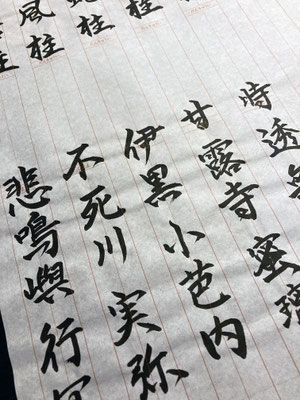 柱 時透
柱 甘露寺 蜜璃
蛇柱 伊黒 小芭内
風柱 不死川 実弥
柱 悲鳴嶼 行